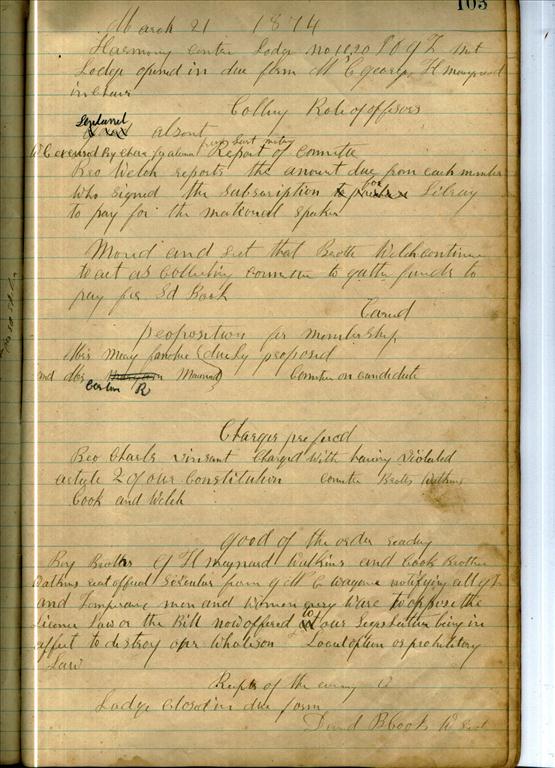 105
March 21 1874
Harmony Center Lodge no 1020 I O G T Met
Lodge opened in due form W C George H Maynard
in Chair
Calling Role of officers
absent
from Last meeting
Report of Committe
Bro Welch reports the amount due from each member
who signed the Subscription for Libray
to pay for the national speaker
Moved and that Brother Welch continue
to act as Collecting to gather funds to
pay for Sd
Carried
proposition for membership
Mis Mary duely proposed
and Mis Maynard Committee on candidate
R
Charges prefered
Bro Charls Vinsant Charged with having Violated
article 2 of our Constitution Brothers Watkins
Cook and Welch
good of the order reading
By Brothers G H Maynard Watkins and Cook Brother
Watkins read official Sircular from notifying all
and Temperance men and women every Ware to oppose the
License Law or the Bill now offered to our Legslature being in
affect to destroy our Local option or prohibitory
Law
of the evning
Lodge Closed in due form
David B Cook W Sect